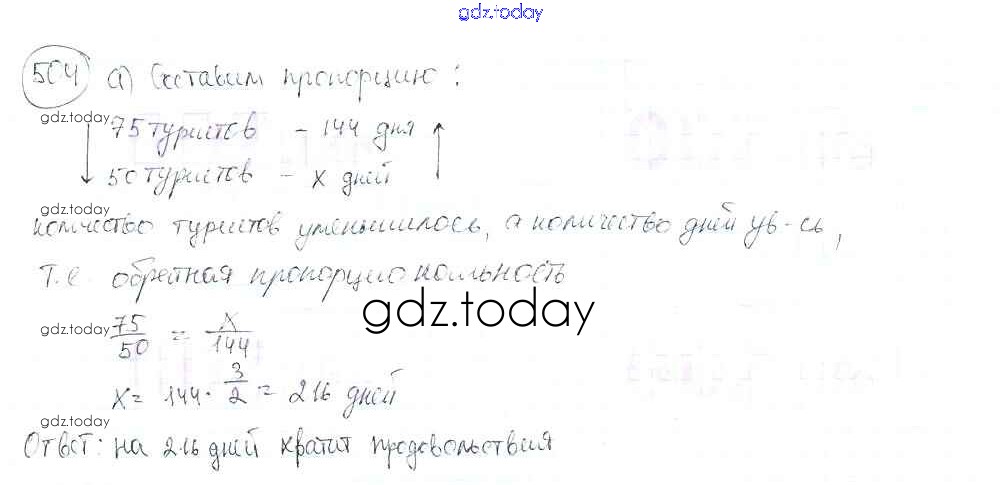 gdz.today
504 а) Составим пропорцию:
gdz.today
75 туристов - 144 дня
50 туристов - x дней
gdz.today
количество туристов уменьшилось, а количество дней ув-сь,
т.е. обратная пропорциональность
gdz.today
gdz.today
75/50 = x/144
x = 144 · 3/2 = 216 дней
gdz.today
Ответ: на 216 дней хватит продовольствия